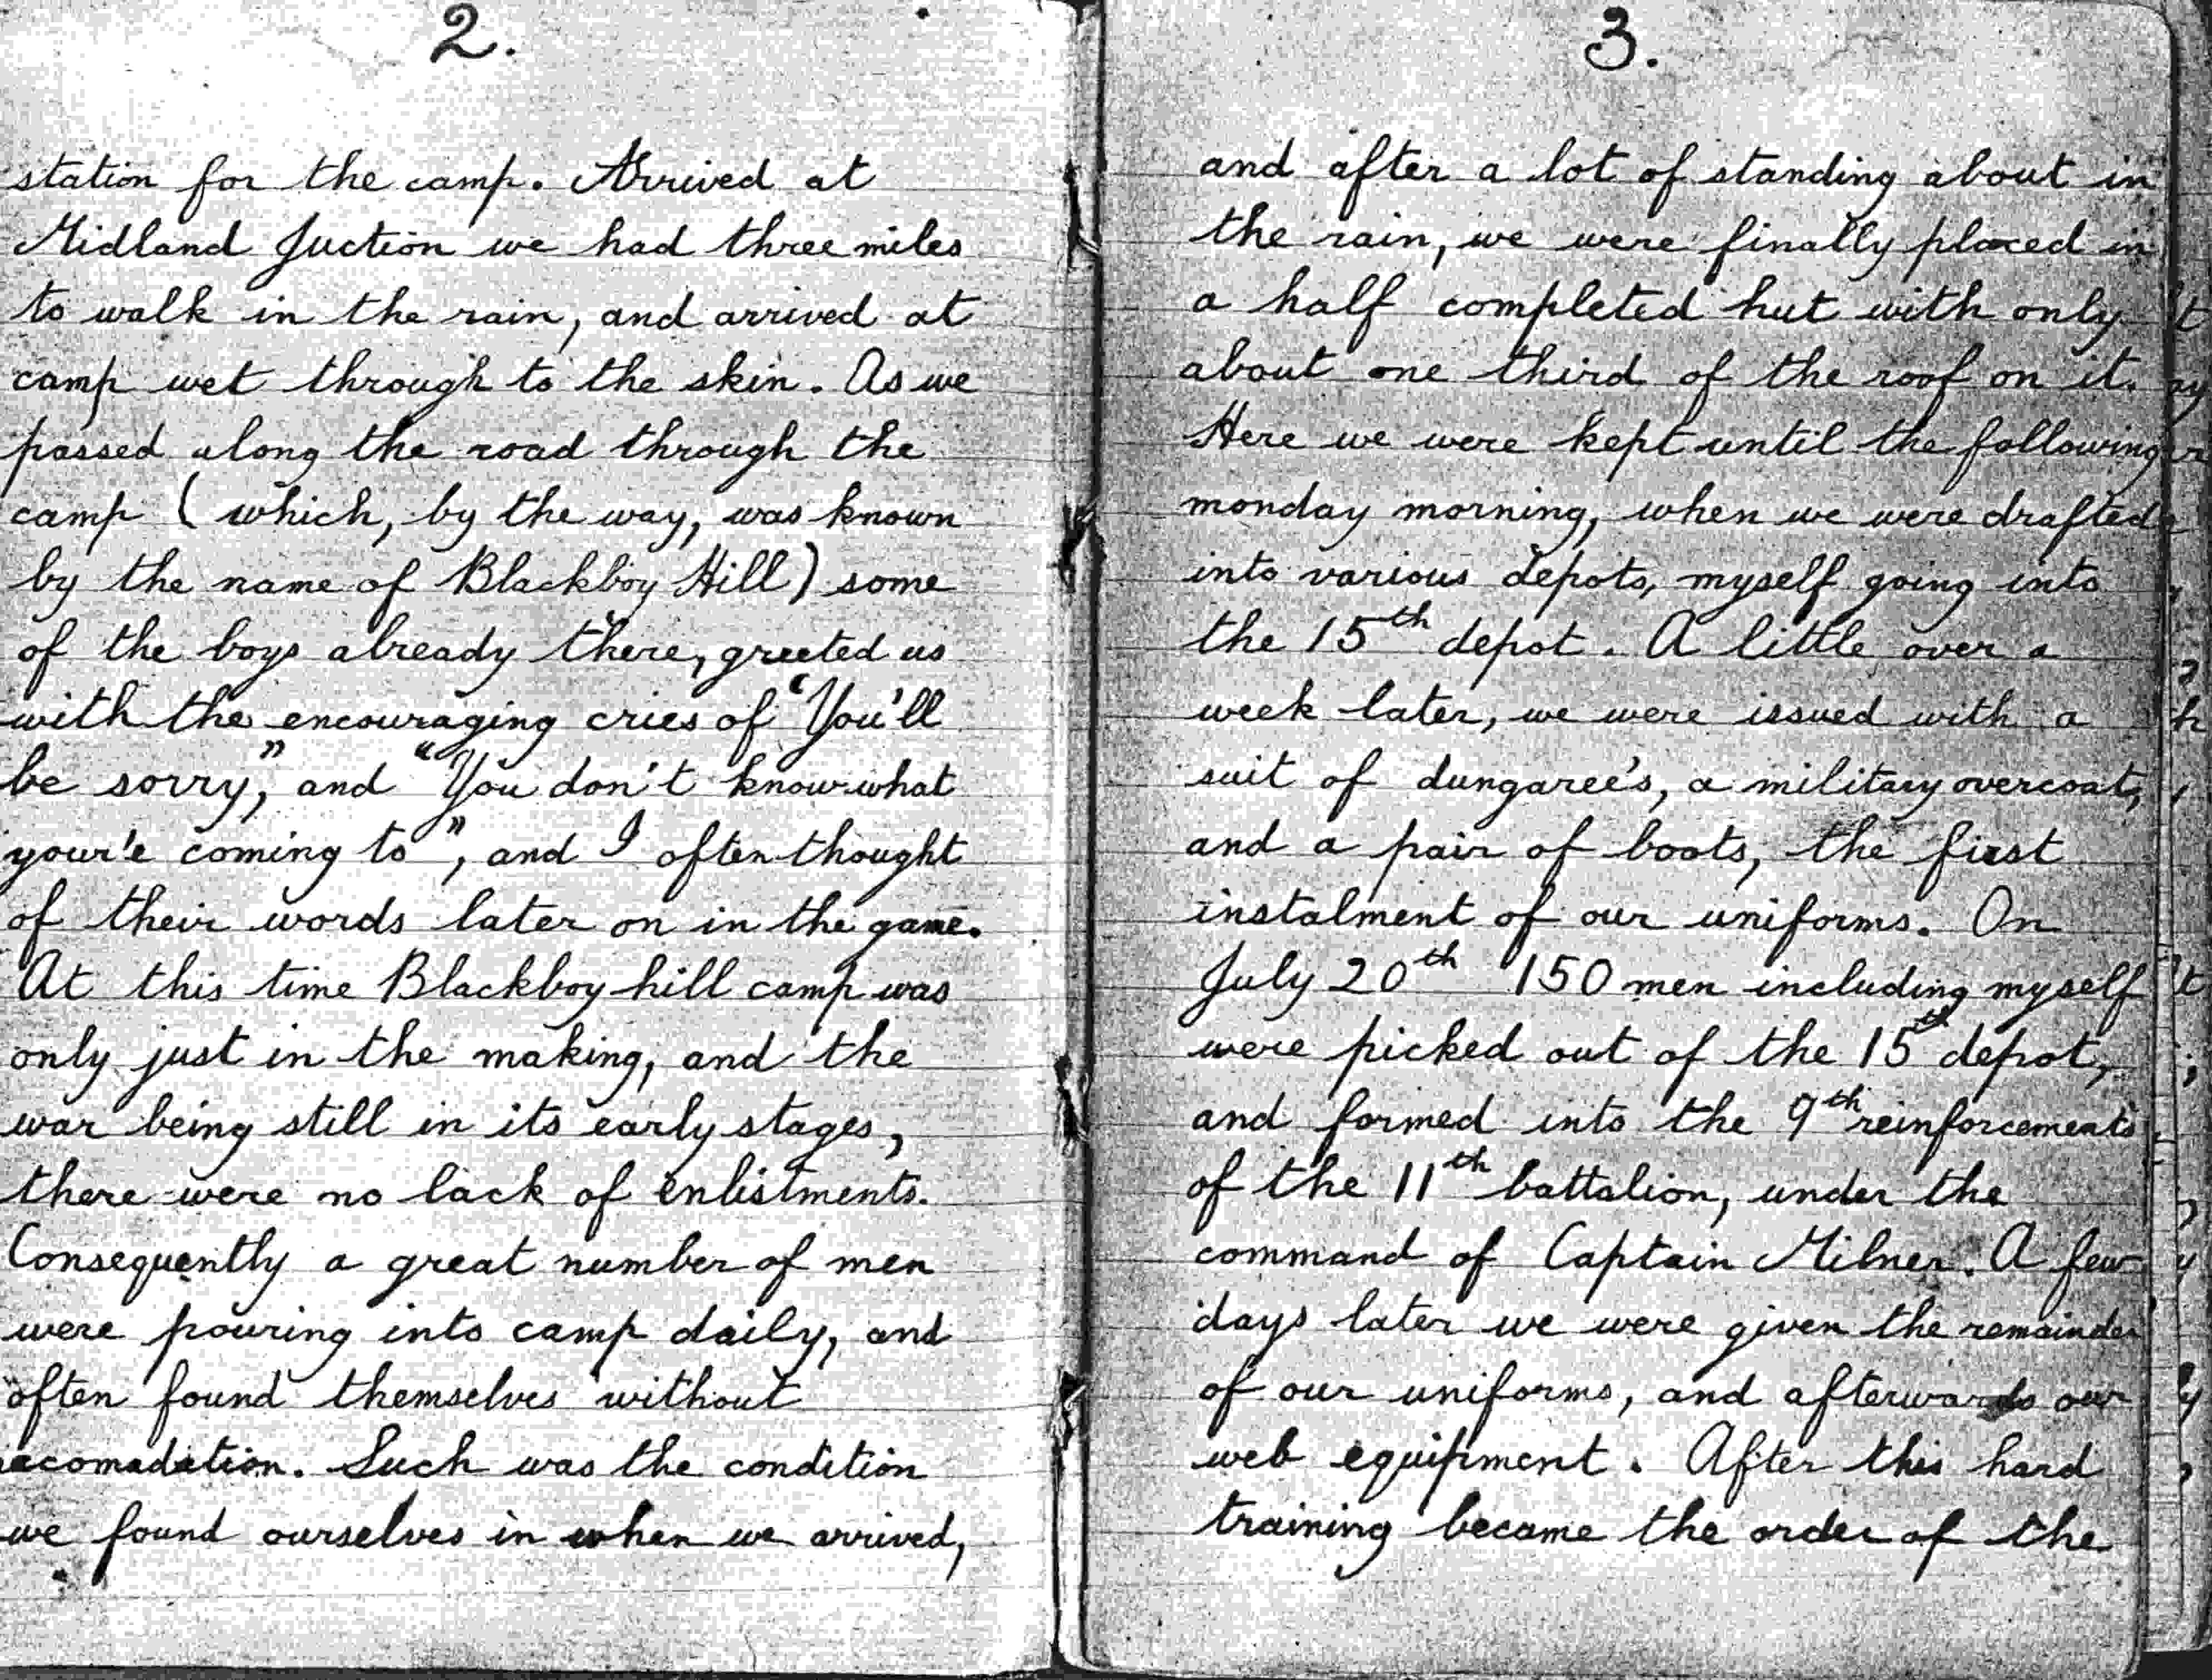 2.
station for the camp. Arrived at
Midland Juction we had three miles
to walk in the rain, and arrived at
camp wet through to the skin. As we
passed along the road through the
camp (which, by the way, was known
by the name of Blackboy Hill) some
of the boys already there, greeted us
with the encouraging cries of "You'll
be sorry," and "You don't know what
your'e coming to", and I often thought
of their words later on in the game.
At this time Blackboy hill camp was
only just in the making, and the
war being still in its early stages,
there were no lack of enlistments.
Consequently a great number of men
were pouring into camp daily, and
often found themselves without
acomadation. Such was the condition
we found ourselves in when we arrived,
3.
and after a lot of standing about in
the rain, we were finally placed in
a half completed hut with only
about one third of the roof on it.
Here we were kept until the following
monday morning, when we were drafted
into various depots, myself going into
the 15th depot. A little over a
week later, we were issued with a
suit of dungaree's, a military overcoat,
and a pair of boots, the first
instalment of our uniforms. On
July 20th 150 men including myself
were picked out of the 15th depot,
and formed into the 9th reinforcements
of the 11th battalion, under the
command of Captain Milner. A few
days later we were given the remainder
of our uniforms, and afterwards our
web equipment. After this hard
training became the order of the